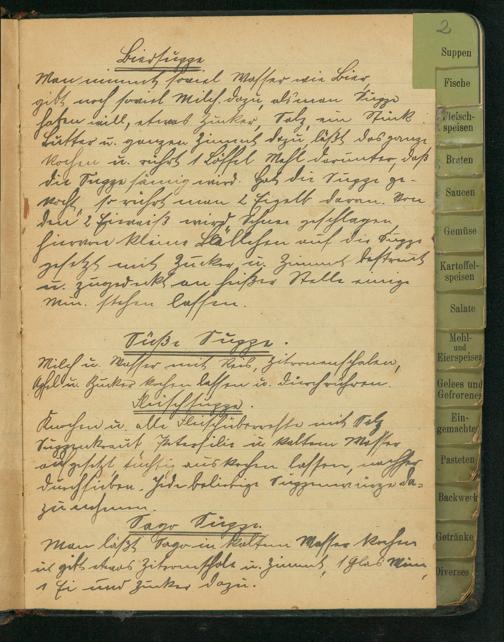 2
Biersuppe
Man nimmt soviel Wasser wie Bier,
gibt noch soviel Milch dazu, als man Suppe
haben will, etwas Zucker, Salz ein Stück
Butter u. ganzen Zimmt dazu, läßt das ganze
kochen u. rührt 1 Löffel Mehl darunter, daß
die Suppe sämig wird. Hat die Suppe ge-
kocht, so rührt man 2 Eigelb daran. Von
den 2 Eiweiß wird Schnee geschlagen
hiervon kleine Bällchen auf die Suppe
gesetzt mit Zucker u. Zimmt bestreut
u. zugedeckt an heißer Stelle einige
Min. stehen lassen.
Süße Suppe.
Milch u. Wasser mit Reis, Zitronenschalen,
Apfel u. Zucker kochen lassen u. durchrühren.
Fleischsuppe.
Knochen u. alle Fleischüberreste mit Salz
Suppenkraut, Petersilie u. kaltem Wasser
aufgesetzt tüchtig auskochen lassen, nachher
durchsieben. Jede beliebige Suppenwürze da-
zu nehmen.
Sago Suppe.
Man läßt Sago in kaltem Wasser kochen
u. gibt etwas Zitronenschale u. Zimmt, 1 Glas Wein,
1 Ei und Zucker dazu.
Suppen
Fische
Fleisch-
speisen
Braten
Saucen
Gemüse
Kartoffel-
speisen
Salate
Mehl-
und
Eierspeisen
Gelees und
Gefrorenes
Ein-
gemachte
Pasteten
Backwerk
Getränke
Diverses